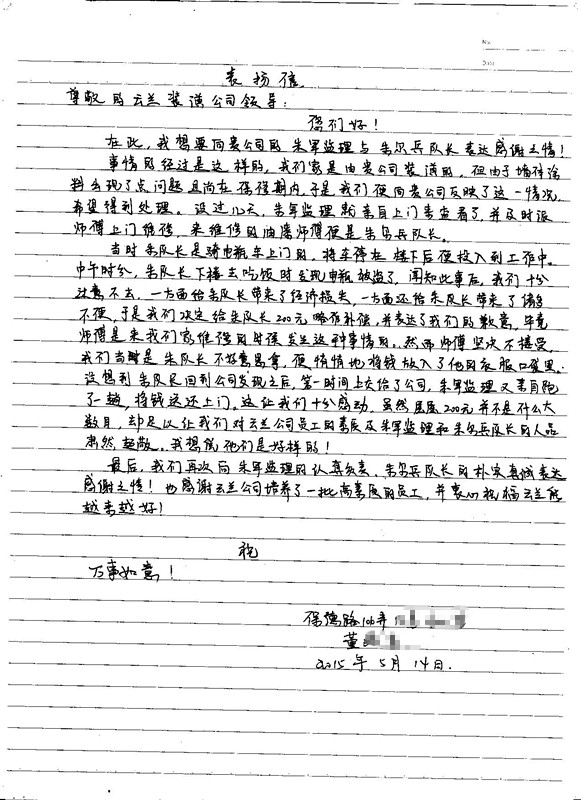 No.
Date
表扬信
尊敬的云兰装潢公司领导：
您们好！
在此，我想要向贵公司的朱军监理与朱尔兵队长表达感谢之情！
事情的经过是这样的，我们家是由贵公司装潢的，但由于墙神涂
料出现了点问题且尚在保保期内，于是我们便向贵公司反映了这一情况，
希望得到处理。没过几天，朱军监理就亲自上门来查看了，并及时派
师傅上门维修，来维修的油漆师傅便是朱尔兵队长。
当时朱队长是骑电瓶车上门的，将车停在楼下后便投入到工作中。
中午时分，朱队长下楼去吃饭时发现电瓶被盗了，闻知此事后，我们十分
过意不去，一方面给朱队长带来了经济损失，一方面还给朱队长带来了诸多
不便，于是我们决定给朱队长200元略作补偿，并表达了我们的歉意，毕竟
师傅是来我们家维修的时候发生这种事情的。然而师傅坚决不接受，
我们当时是朱队长不好意思拿，便悄悄地将钱放入了他的衣服口袋里。
没想到朱队长回到公司发现之后，第一时间上交给了公司，朱军监理又亲自跑
了一趟，将钱送还上门。这让我们十分感动，虽然区区200元并不是什么大
数目，却足以让我们对云兰公司员工的素质及朱军监理和朱尔兵队长的人品
肃然起敬。我想说他们是好样的！
最后，我们再次向朱军监理的认真负责、朱尔兵队长的朴实真诚表达
感谢之情！也感谢云兰公司培养了一批高素质的员工，并衷心祝福云兰能
越来越好！
祝
万事如意！
保德路106弄
董
2015年5月14日.